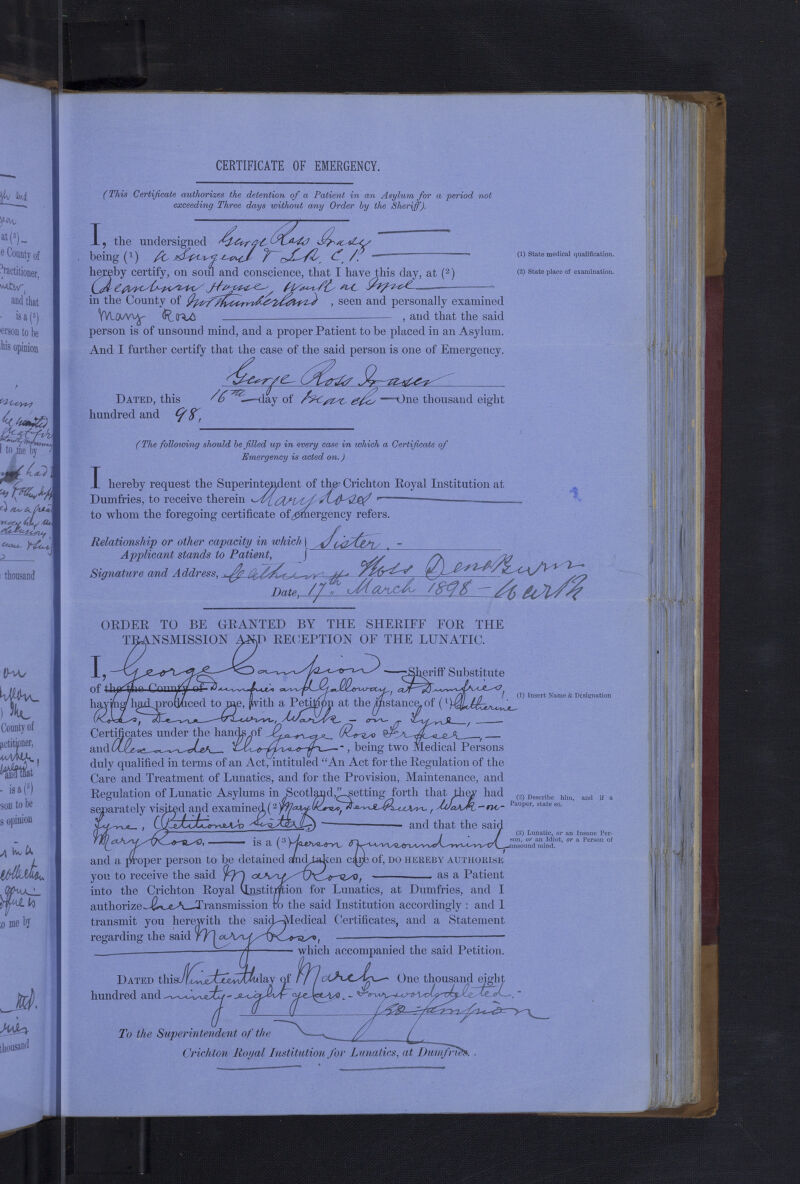 CERTIFICATE OF EMERGENCY.
(This Certificate authorizes the detention of a Patient in an Asylum for a period not
exceeding Three days without any Order by the Sheriff).
I, the undersigned George Ross Fraser
being (1) a Surgeon & L.R.C.P.
hereby certify, on soul and conscience, that I have this day, at (2)
Deanburn House, Wark on Tyne
in the County of Northumberland, seen and personally examined
Mary Ross, and that the said
person is of unsound mind, and a proper Patient to be placed in an Asylum.
And I further certify that the case of the said person is one of Emergency.
George Ross Fraser
DATED, this 16th day of March One thousand eight
hundred and 98,
(1) State medical qualification.
(2) State place of examination.
(The following should be filled up in every case in which a Certificate of
Emergency is acted on.)
I hereby request the Superintendent of the Crichton Royal Institution at
Dumfries, to receive therein Mary Ross
to whom the foregoing certificate of emergency refers.
Relationship or other capacity in which
Applicant stands to Patient, } Sister. -
Signature and Address, Catherine Ross Dene Burn
Date, 17th March 1898 - Wark
ORDER TO BE GRANTED BY THE SHERIFF FOR THE
TRANSMISSION AND RECEPTION OF THE LUNATIC.
I, George Campion Sheriff Substitute
of the the County of Dumfries and Galloway, at Dumfries,
having had produced to me, with a Petition at the instance of (1) Catherine
Ross, Dene Burn, Wark - on - Tyne,
Certificates under the hands of George Ross Fraser,
and Alexander Thomson, being two Medical Persons
duly qualified in terms of an Act, intituled "An Act for the Regulation of the
Care and Treatment of Lunatics, and for the Provision, Maintenance, and
Regulation of Lunatic Asylums in Scotland," setting forth that they had
separately visited and examined (2 Mary Ross, Dene Burn, Wark-on-
Tyne, (Petitioner's Sister) and that the said
Mary Ross, is a (3) person of unsound mind,
and a proper person to be detained and taken care of, DO HEREBY AUTHORISE
you to receive the said Mary Ross, as a Patient
into the Crichton Royal Institution for Lunatics, at Dumfries, and I
authorize her Transmission to the said Institution accordingly : and I
transmit you herewith the said Medical Certificates, and a Statement
regarding the said Mary Ross,
which accompanied the said Petition.
DATED this Nineteenth day of March One thousand eight
hundred and ninety-eight years. - Four words deleted. -
Geo. Campion
To the Superintendent of the
Crichton Royal Institution for Lunatics, at Dumfries.
(1) Insert Name & Designation
(2) Describe him, and if a
Pauper, state so.
(3) Lunatic, or an Insane Per-
son, or an Idiot, or a Person of
unsound mind.
at (2)
County of
Practitioner,
and that
is a (3)
person to be
his opinion
to me by
thousand
County of
and that
is a (3)
son to be
s opinion
to me by
thousand